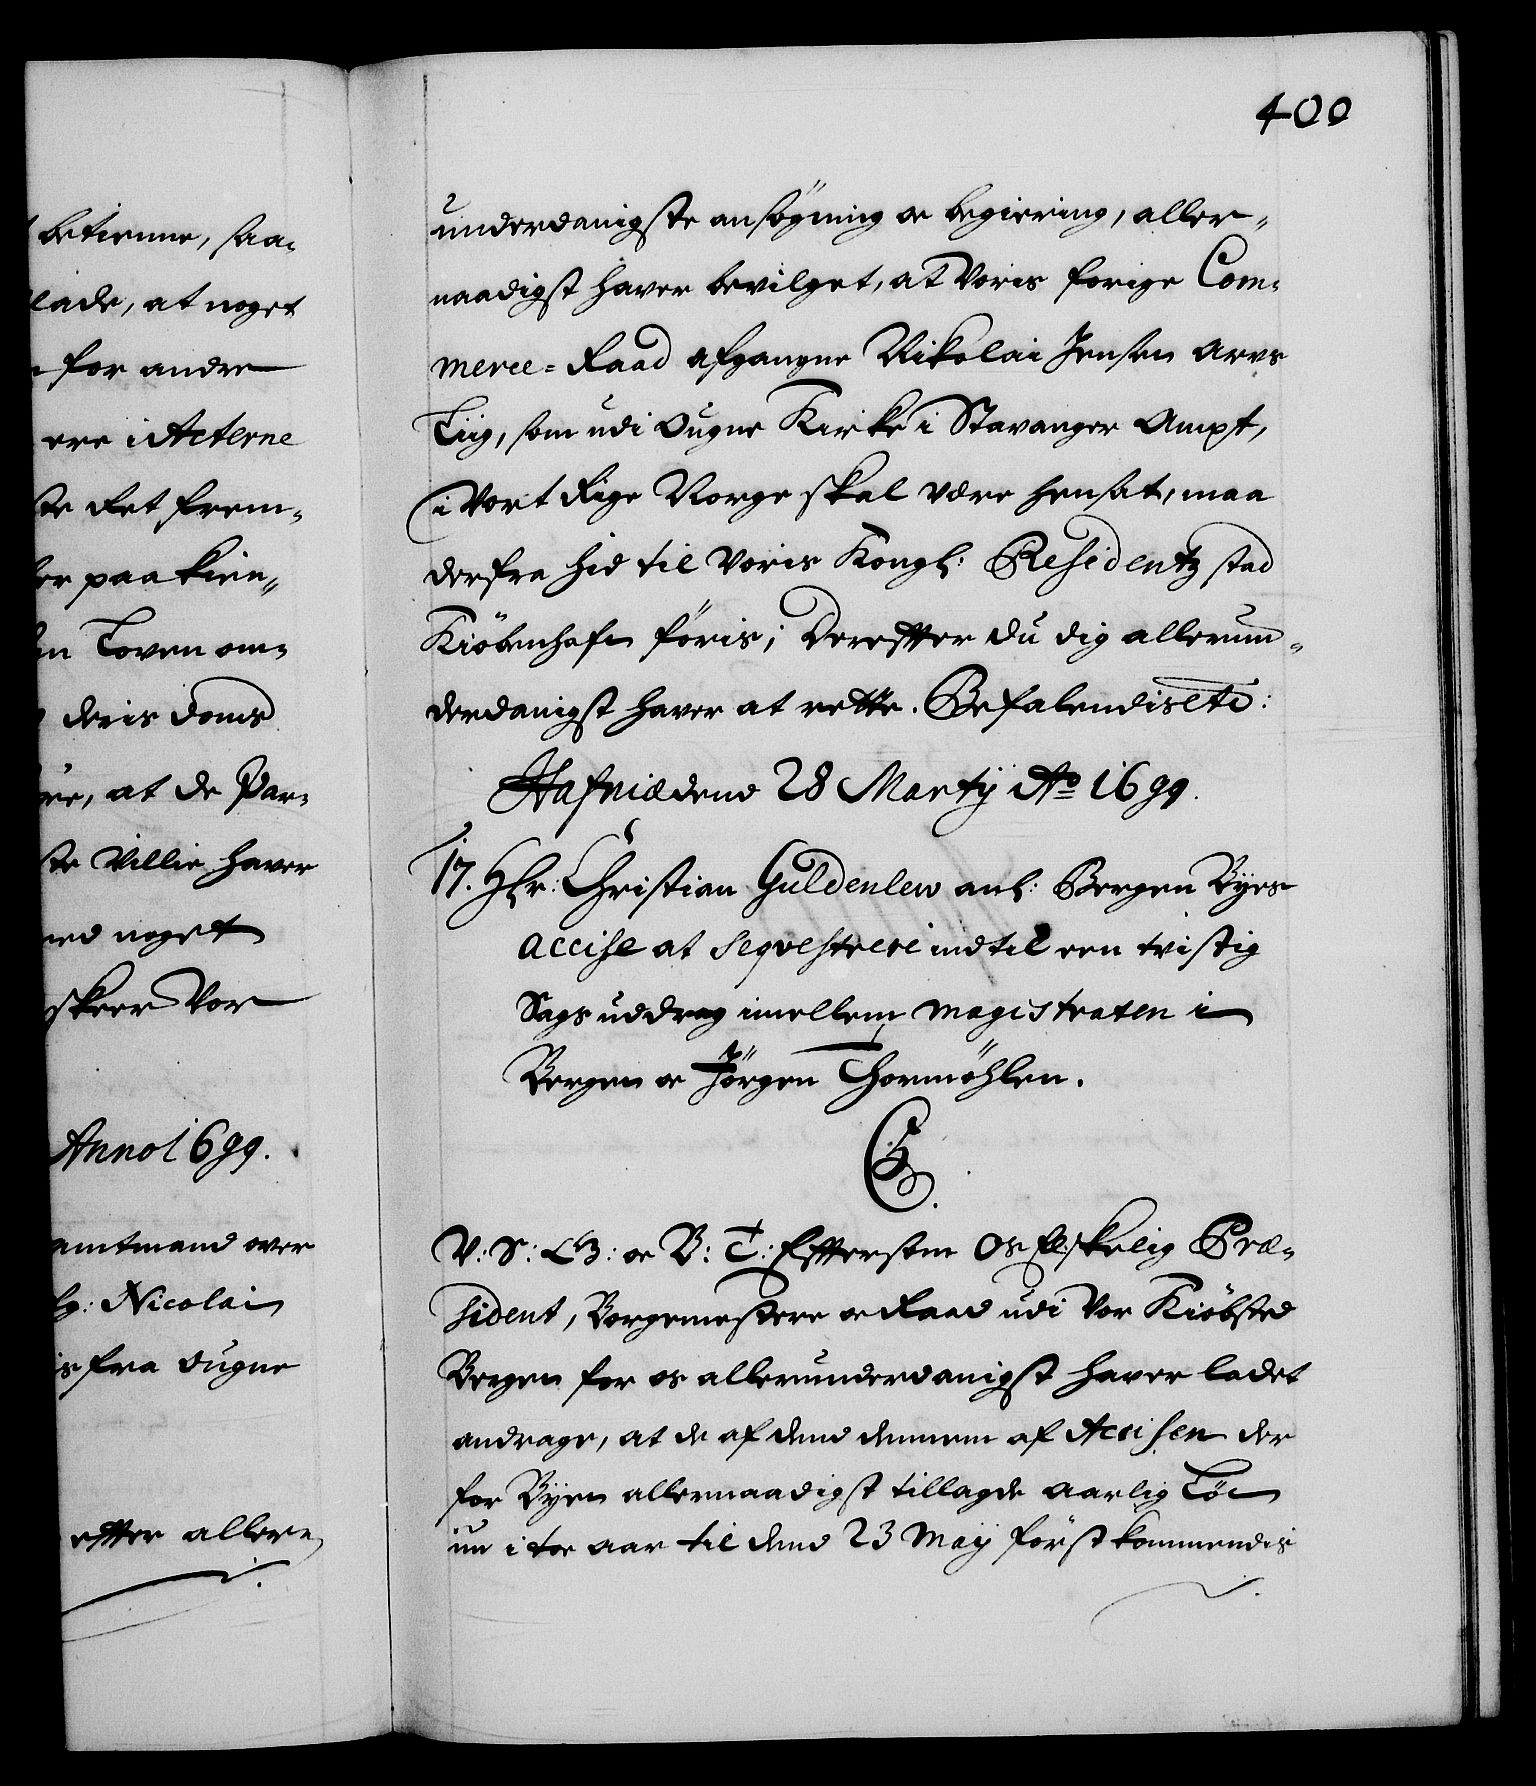 400
betienne, saa-
lade, at noget
for andre
ere i Acterne
ste det frem-
er paa kien-
Loven om-
deris doms
re, at de Par-
ste Villie haver
med noget
skeer Vor
Anno 1699.
amtmand over
Nicolai
is fra Ougne
efter aller-
underdanigste ansøgning oc begiering, aller-
naadigst haver bevilget, at Voris forige Com-
merce-Raad afgangne Nikolai Jensen Arvs
Liig, som udi Ougne Kirke i Stavanger Ampt,
i Vort Rige Norge skal være hensat, maa
derfra hid til Voris Kongl: Residentz stad
Kiöbenhafn föris; Derefter du dig allerun-
derdanigst haver at rette. Befalendis etc:
Hafniæ dend 28 Martij Ao 1699.
17. Hr: Christian Guldenlew anl: Bergen Byes
Accise at seqvestrere indtil een tvistig
Sags uddrag imellem Magistraten i
Bergen oc Jörgen Thormöhlen.
C5.
V: S: G: oc B: T: Eftersom Os Elskelig Præ-
sident, Borgemestere oc Raad udi Vor Kiöbsted
Bergen for os allerunderdanigst haver ladet
andrage, at de af dend dennem af Accisen der
for Byen allernaadigst tillagde aarlig Løn
nu i toe aar til dend 23 Maij först kommendis